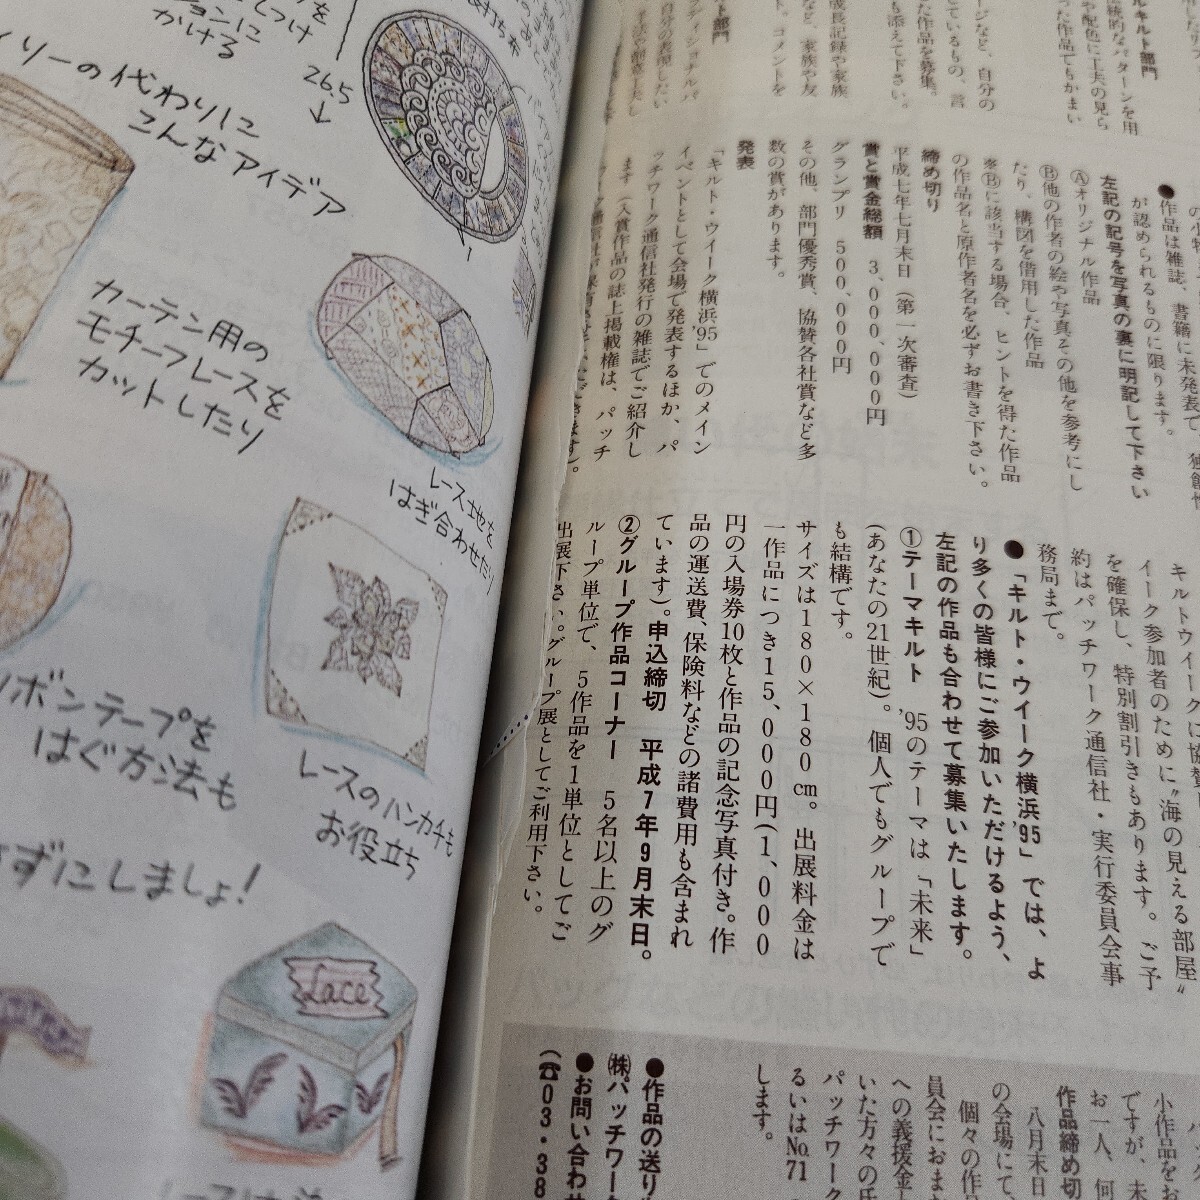 を
しつけ
ションに
かける
26.5
↓
リーの代わりに
こんなアイデア
カーテン用の
モチーフレースを
カットしたり
レース地を
はぎ合わせたり
ボンテープを
はぐ方法も
レースのハンカチも
お役立ち
ずにしましょ!
Lace
ルキルト部門
統的なパターンを用
や配色に工夫の見ら
った作品でもかまい
ージなど、自分の
としているもの。言
た作品を募集。
も添えて下さい。
成長記録や家族
など、家族や友
ト。コメントを
ト部門
●作品は雑誌、書籍に未発表で、独創性
が認められるものに限ります。
左記の記号を写真の裏に明記して下さい
Ⓐオリジナル作品
Ⓑ他の作者の絵や写真その他を参考にし
たり、構図を借用した作品
※Ⓑに該当する場合、ヒントを得た作品
の作品名と原作者名を必ずお書き下さい。
締め切り
平成七年七月末日(第一次審査)
賞と賞金総額 3,000,000円
グランプリ 500,000円
その他、部門優秀賞、協賛各社賞など多
数の賞があります。
発表
「キルト・ウイーク横浜'95」でのメイン
イベントとして会場で発表するほか、パ
ッチワーク通信社発行の雑誌でご紹介し
ます(入賞作品の誌上掲載権は、パッチ
キルトウイークに協賛
イーク参加者のために"海の見える部屋"
を確保し、特別割引きもあります。ご予
約はパッチワーク通信社・実行委員会事
務局まで。
●「キルト・ウイーク横浜'95」では、よ
り多くの皆様にご参加いただけるよう、
左記の作品も合わせて募集いたします。
①テーマキルト '95のテーマは「未来」
(あなたの21世紀)。個人でもグループで
も結構です。
サイズは180×180cm。出展料金は
一作品につき15,000円(1,000
円の入場券10枚と作品の記念写真付き。作
品の運送費、保険料などの諸費用も含まれ
ています)。申込締切 平成7年9月末日。
②グループ作品コーナー 5名以上のグ
ループ単位で、5作品を1単位としてご
出展下さい。グループ展としてご利用下さい。
小作品をお
ですが、未
お一人、何
作品締め切
八月末日
の会場にて
個々の作品
員会におま
への義援金
いた方々の氏
パッチワーク
るいはNo.71
します。
●作品の送り
㈱パッチワー
●お問い合わせ
(☎03・38